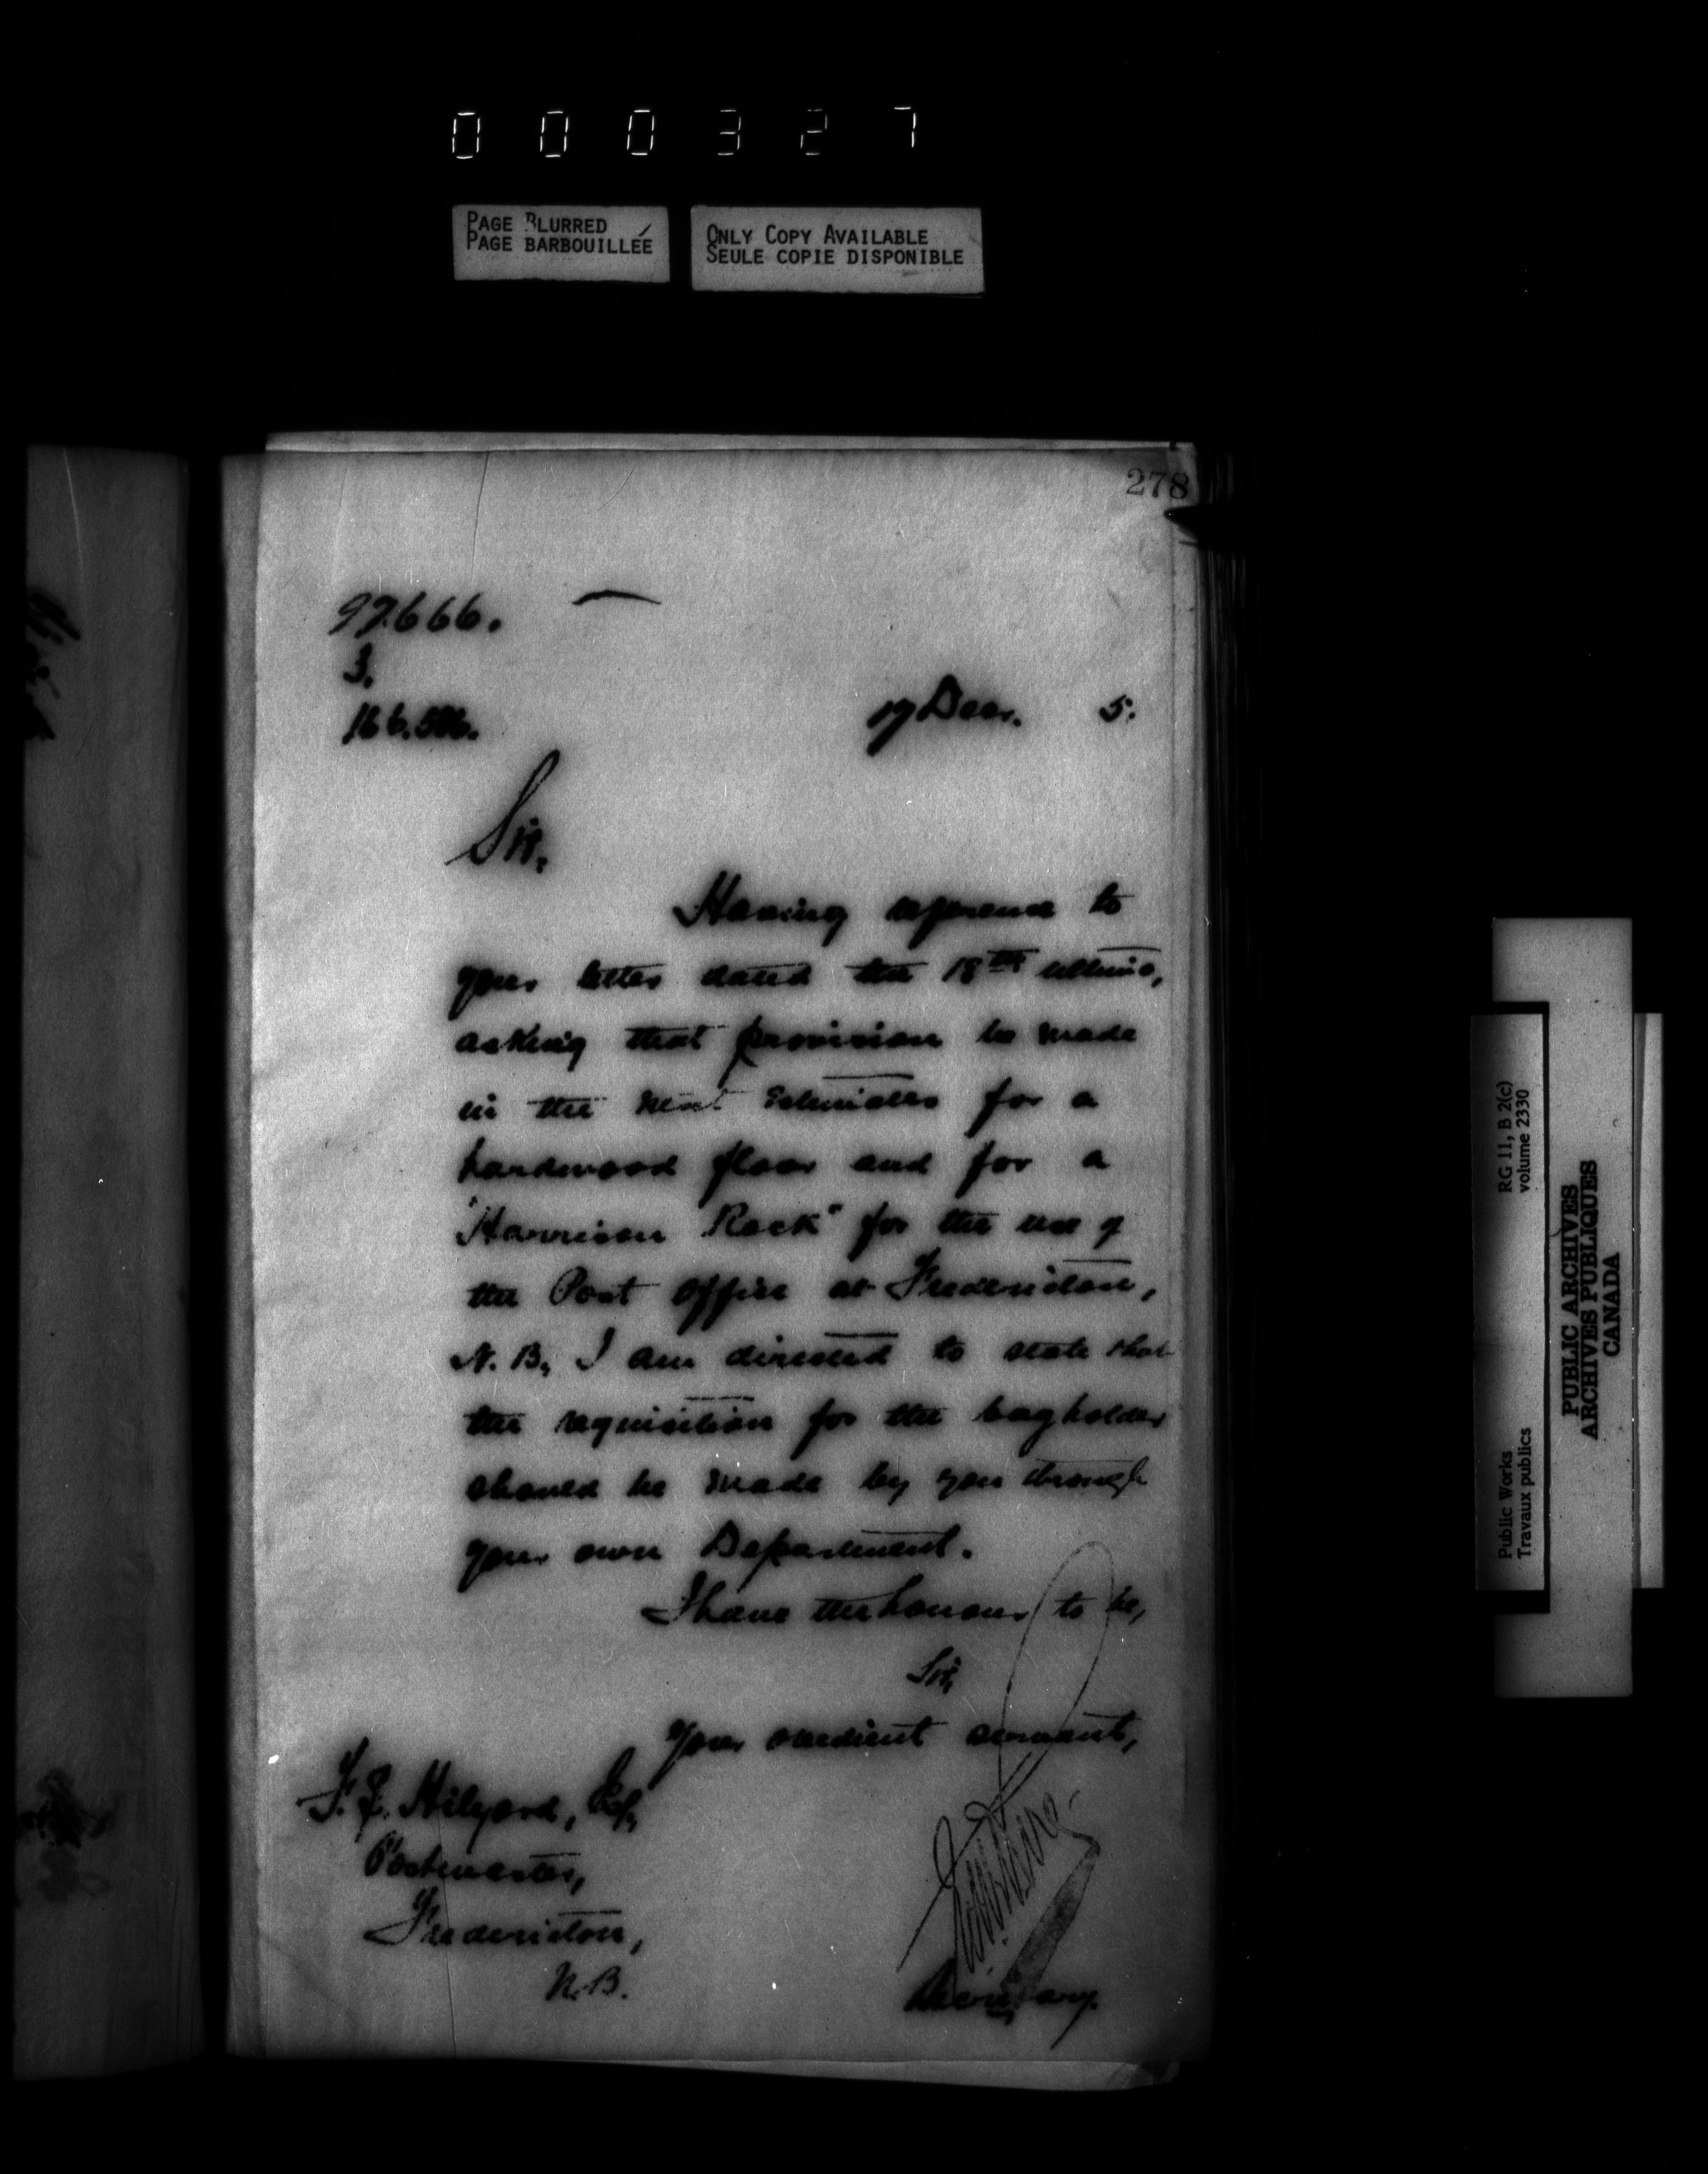 000327
PAGE BLURRED
PAGE BARBOUILLÉE
ONLY COPY AVAILABLE
SEULE COPIE DISPONIBLE
278
97666.
3.
17 Decr. 5.
Sir,
Having reference to
your letter dated the 18th ultimo,
asking that provision be made
in the next Estimates for a
hardwood floor and for a
"Harrison Rack" for the use of
the Post Office at Fredericton,
N. B., I am directed to state that
the requisition for the bagholder
should be made by you through
your own Department.
I have the honour to be,
Sir,
Your obedient servant,
Hilyard, Esq,
Postmaster,
Fredericton,
N.B.
Secretary.
Public Works
Travaux publics
RG 11, B 2(c)
volume 2330
PUBLIC ARCHIVES
ARCHIVES PUBLIQUES
CANADA